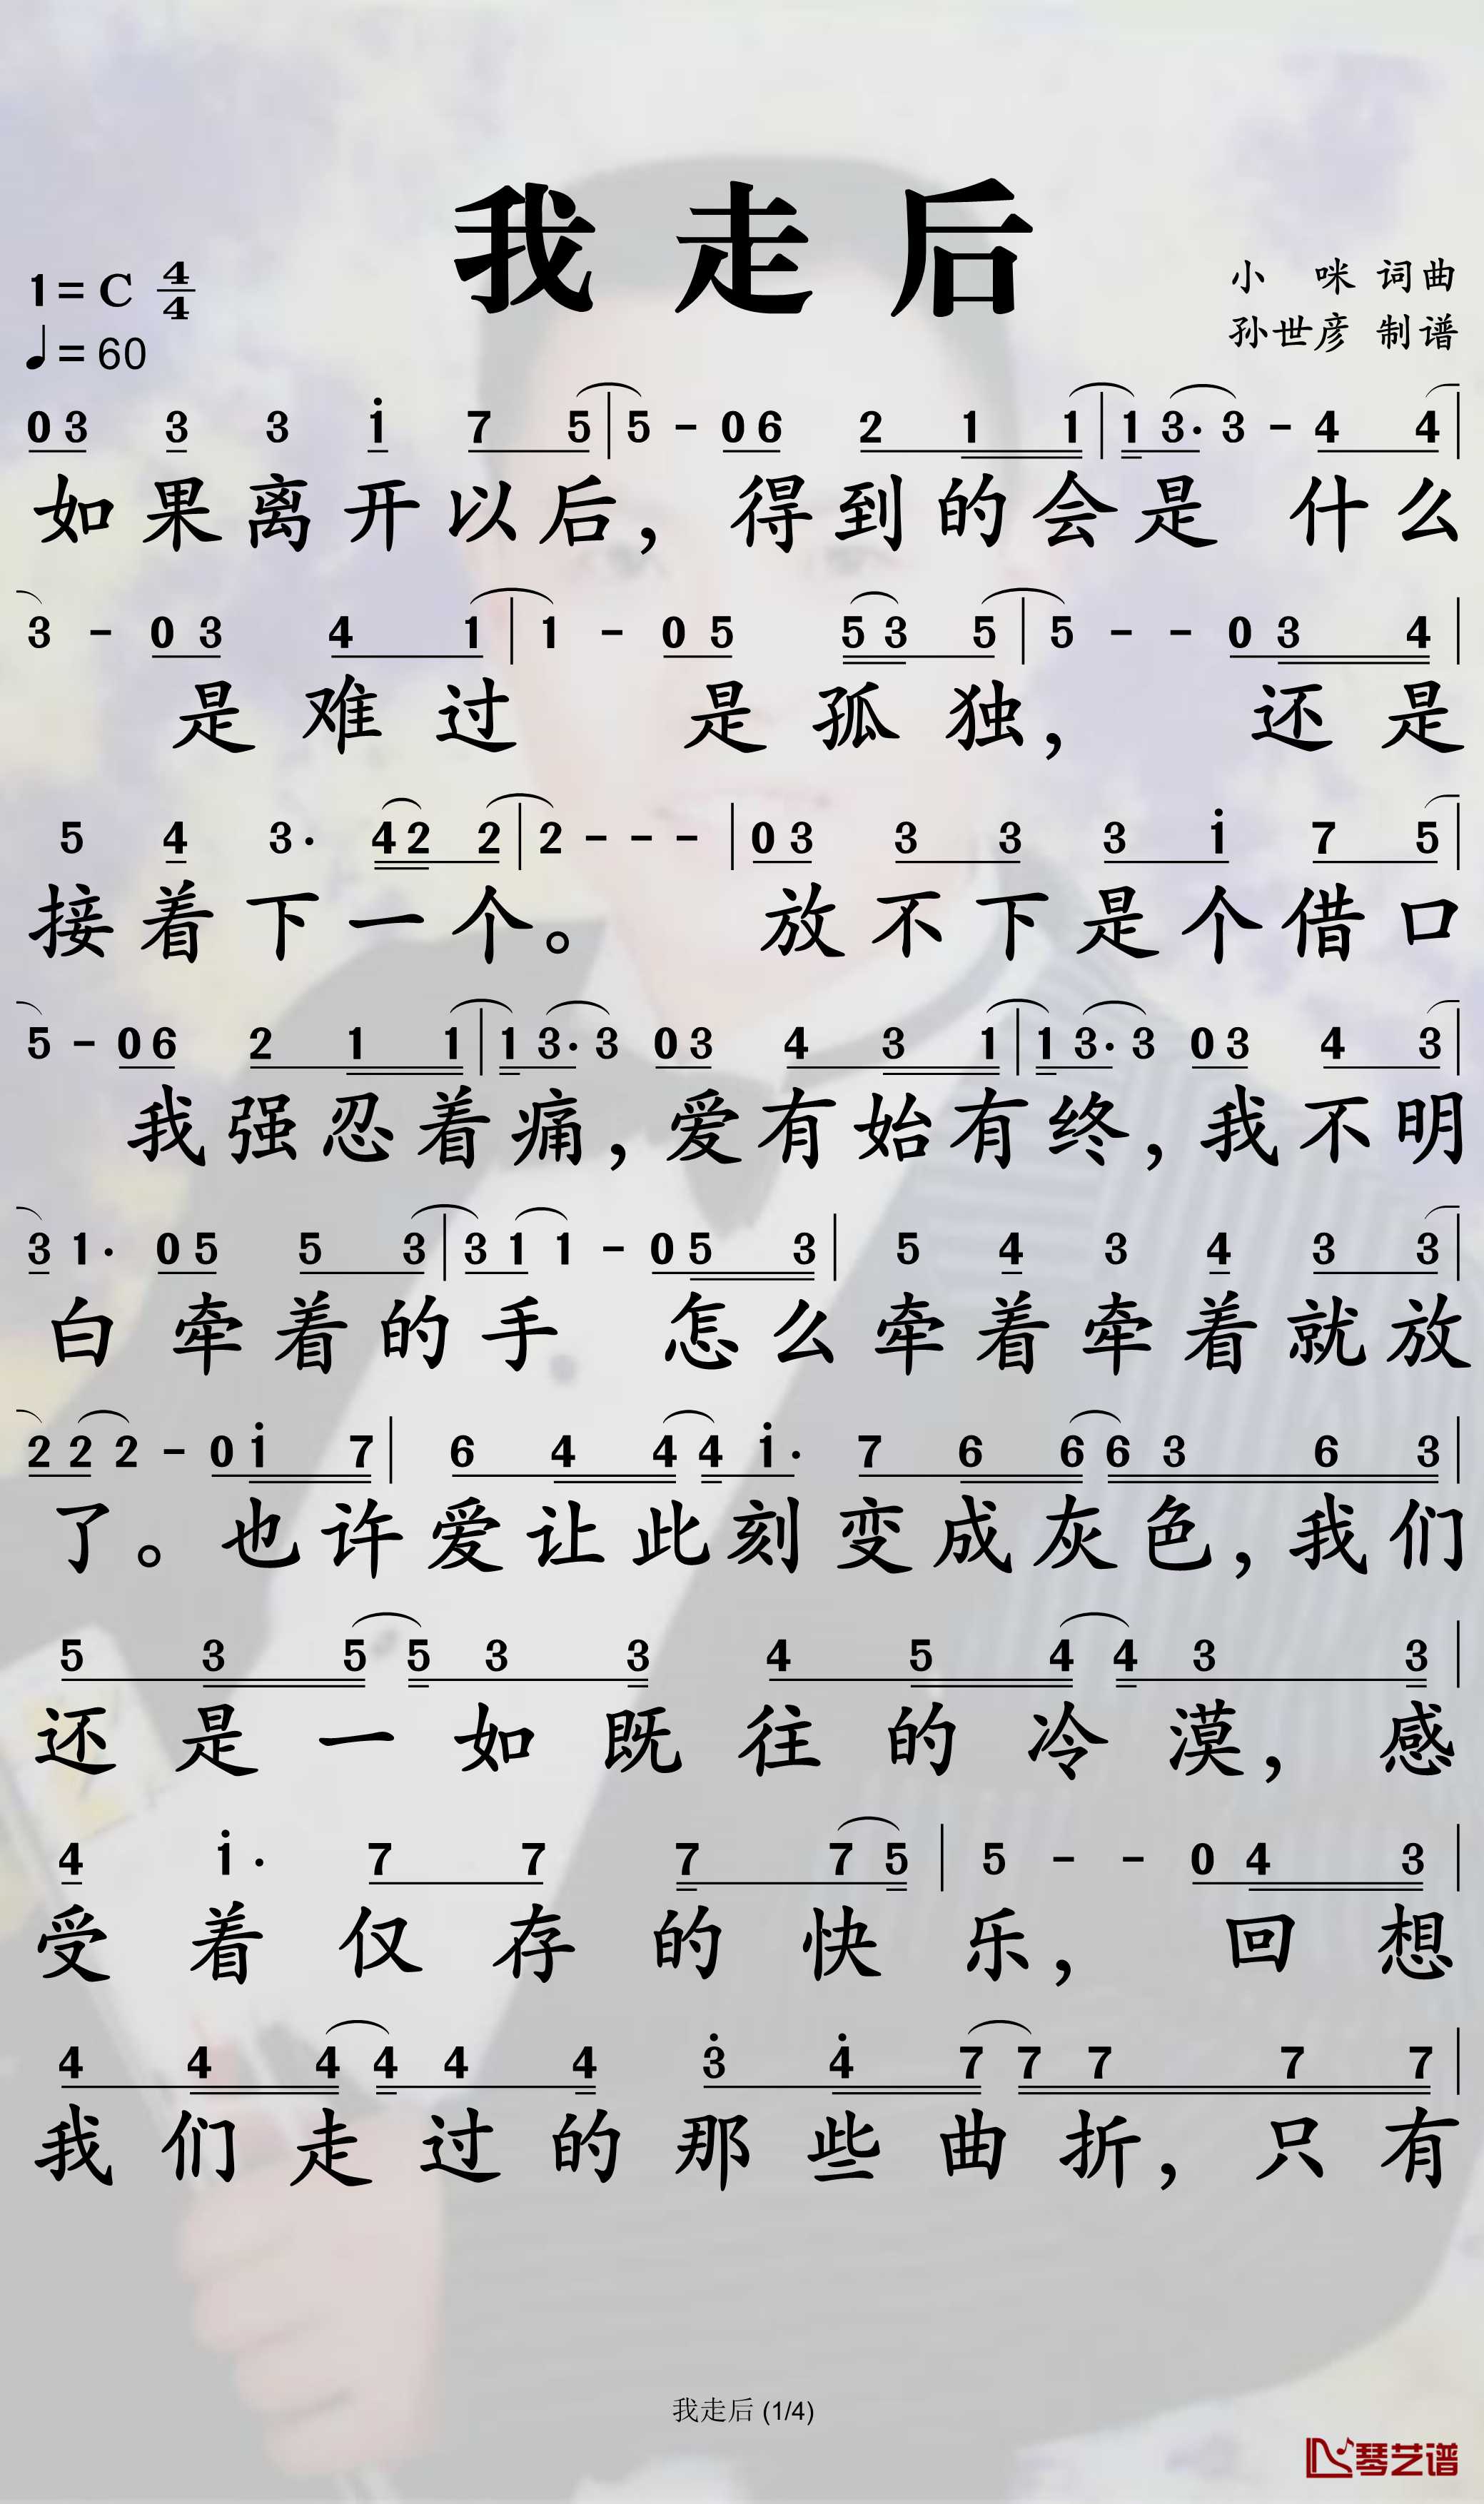 我走后
1=C 4/4
♩=60
小 咪 词曲
孙世彦 制谱
03 3 3 i 7 5 | 5 - 06 2 1 1 | 1 3· 3 - 4 4 |
如果离开以后，得到的会是 什么
3 - 0 3 4 1 | 1 - 0 5 5 3 5 | 5 - - 0 3 4 |
是难过 是孤独， 还是
5 4 3· 42 2 | 2 - - - | 0 3 3 3 3 i 7 5 |
接着下一个。 放不下是个借口
5 - 06 2 1 1 | 1 3· 3 03 4 3 1 | 1 3· 3 03 4 3 |
我强忍着痛，爱有始有终，我不明
3 1· 05 5 3 | 3 1 1 - 05 3 | 5 4 3 4 3 3 |
白 牵着的手 怎么牵着牵着就放
2 2 2 - 0 i 7 | 6 4 4 4 i· 7 6 6 6 3 6 3 |
了。也许爱让此刻变成灰色，我们
5 3 5 5 3 3 4 5 4 4 3 3 |
还是一如既往的冷漠，感
4 i· 7 7 7 7 5 | 5 - - 0 4 3 |
受着仅存的快乐， 回想
4 4 4 4 4 4 3̇ 4̇ 7 7 7 7 7 |
我们走过的那些曲折，只有
我走后 (1/4)
琴艺谱